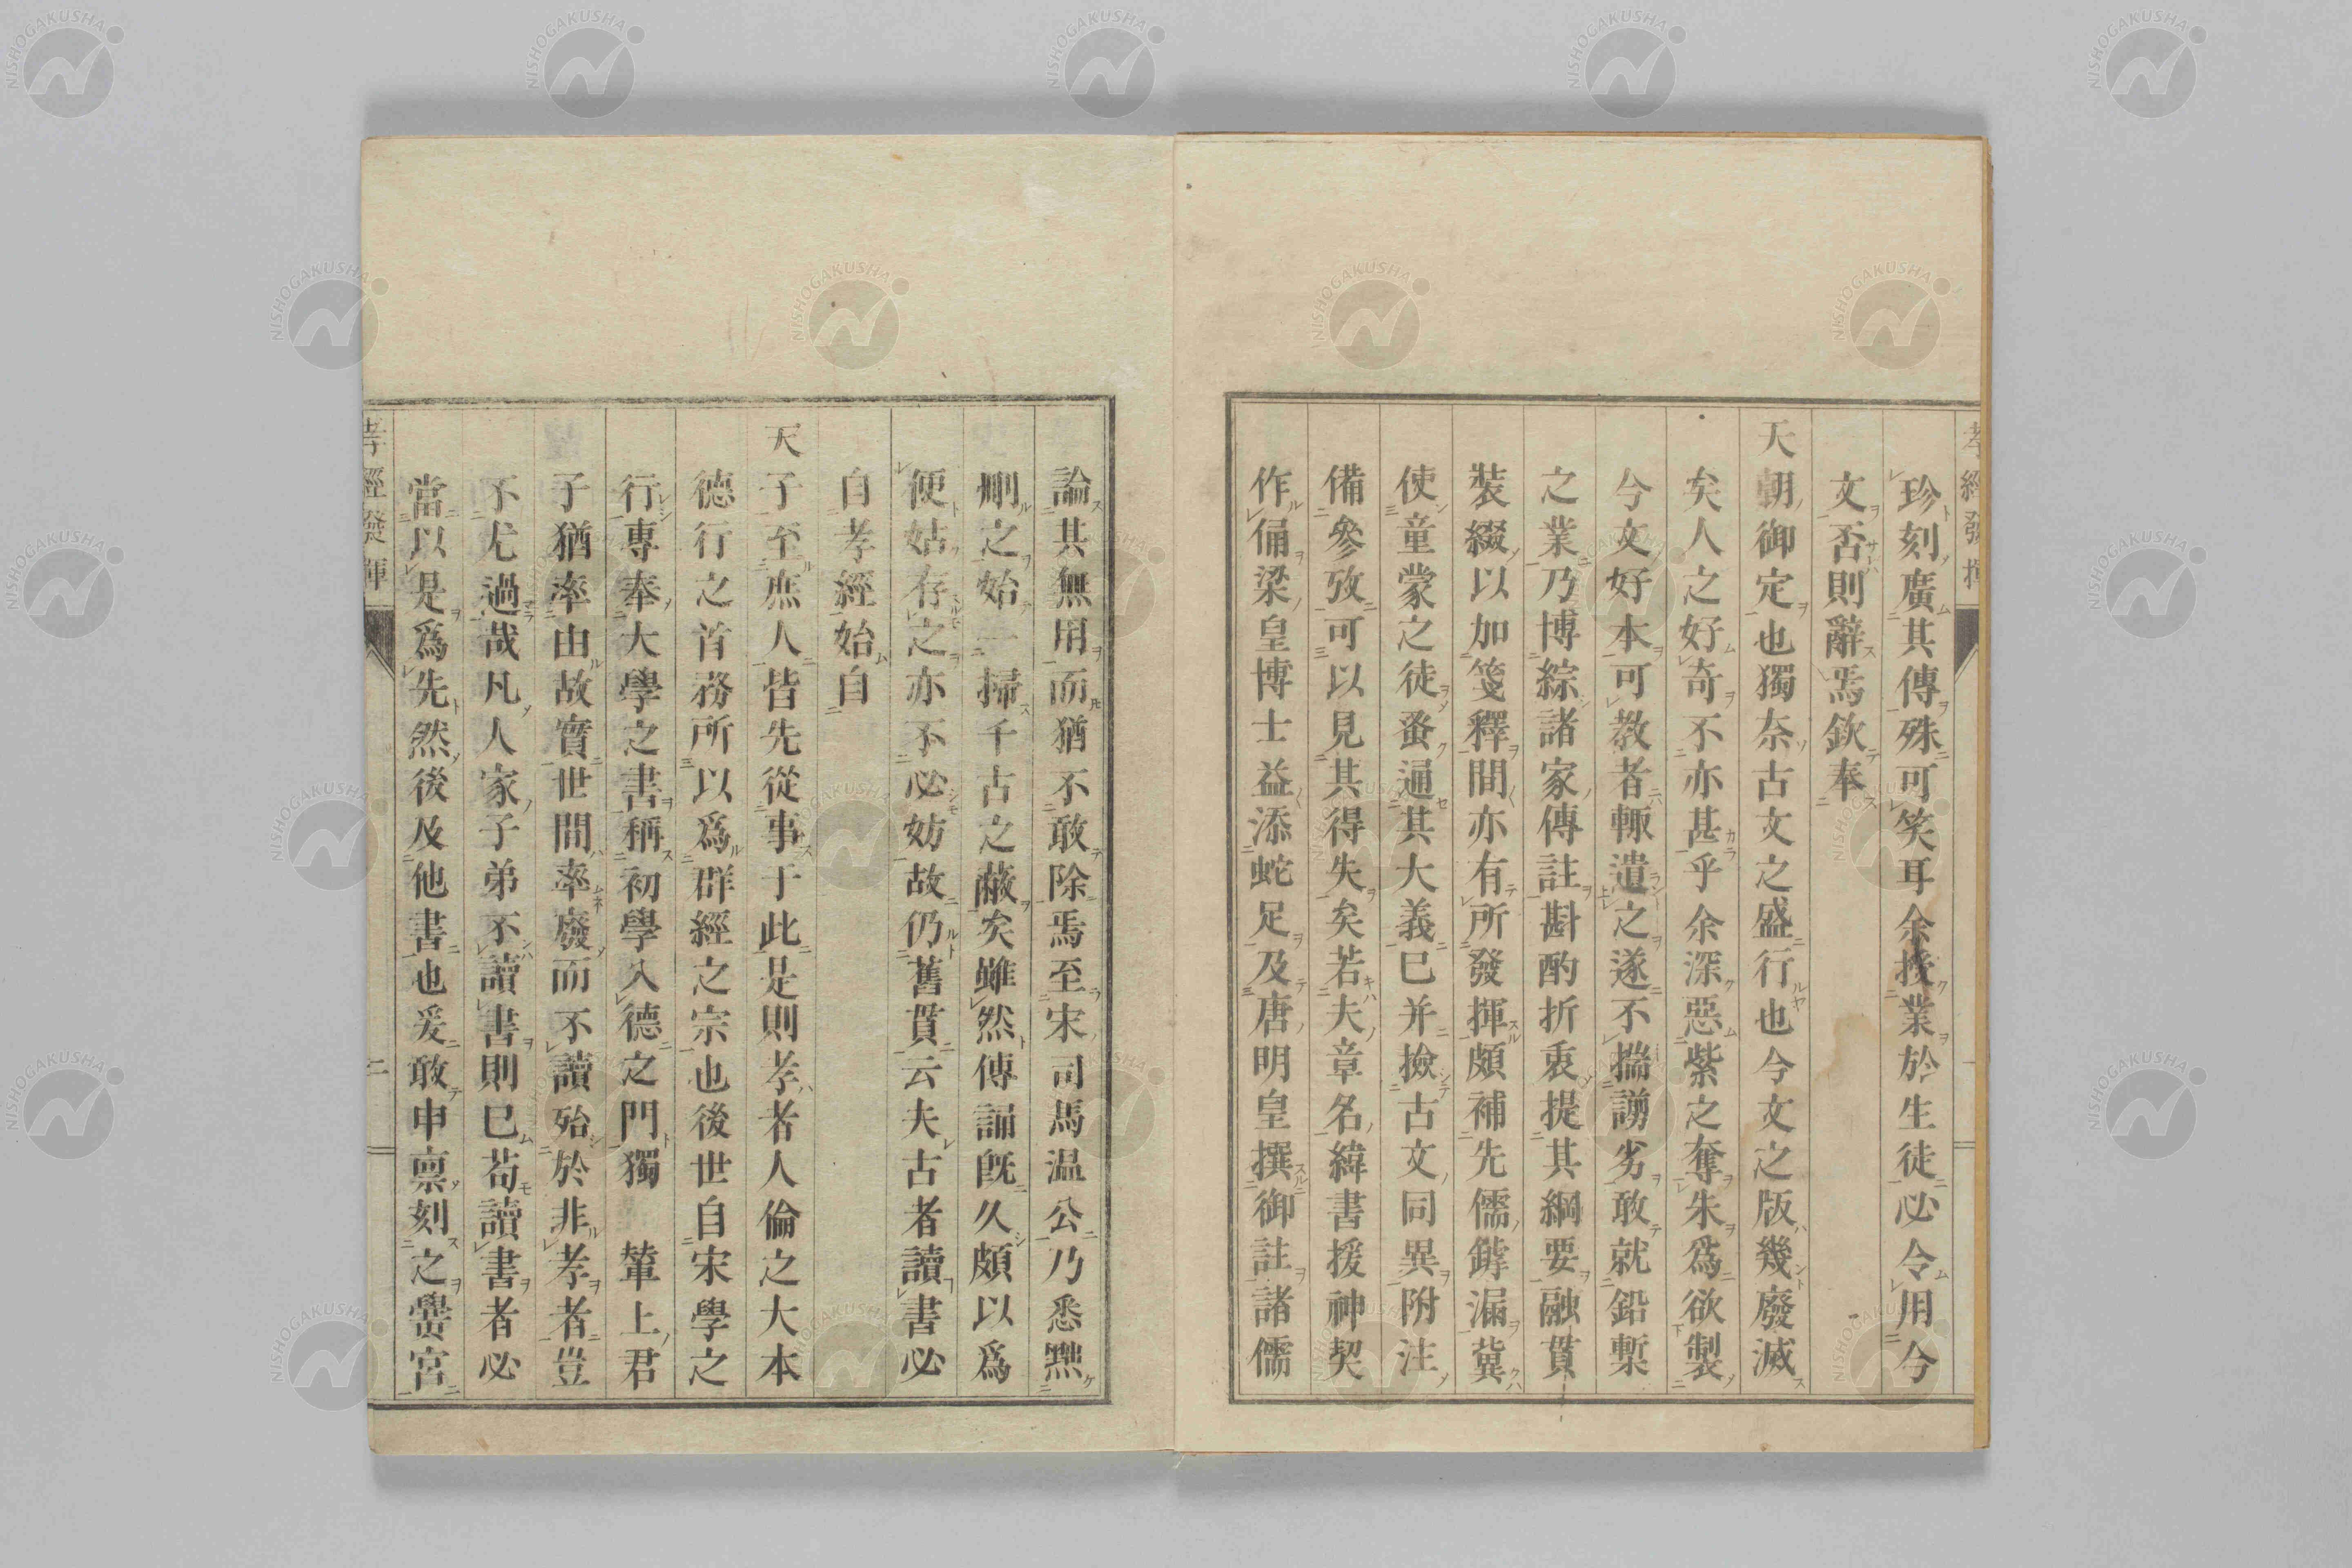 珍刻廣其傳殊可笑耳余授業於生徒必令用今
文否則辭焉欽奉
天朝御定也獨奈古文之盛行也今文之版幾廢滅
矣人之好奇不亦甚乎余深惡紫之奪朱爲欲製
今文好本可教者輙遺之遂不揣謭劣敢就鉛槧
之業乃博綜諸家傳註斟酌折衷提其綱要融貫
裝綴以加箋釋間亦有所發揮頗補先儒罅漏冀
使童蒙之徒蚤通其大義已并撿古文同異附注
備參攷可以見其得失矣若夫章名緯書援神契
作俑梁皇博士益添蛇足及唐明皇撰御註諸儒
論其無用而猶不敢除焉至宋司馬温公乃悉黜
刪之始一掃千古之蔽矣雖然傳誦旣久頗以爲
便姑存之亦不必妨故仍舊貫云夫古者讀書必
自孝經始自
天子至庶人皆先從事于此是則孝者人倫之大本
德行之首務所以爲群經之宗也後世自宋學之
行專奉大學之書稱初學入德之門獨 輦上君
子猶率由故實世間率廢而不讀殆於非孝者豈
不尤過哉凡人家子弟不讀書則已苟讀書者必
當以是爲先然後及他書也爰敢申稟刻之黌宮
孝經發揮
二
NISHOGAKUSHA